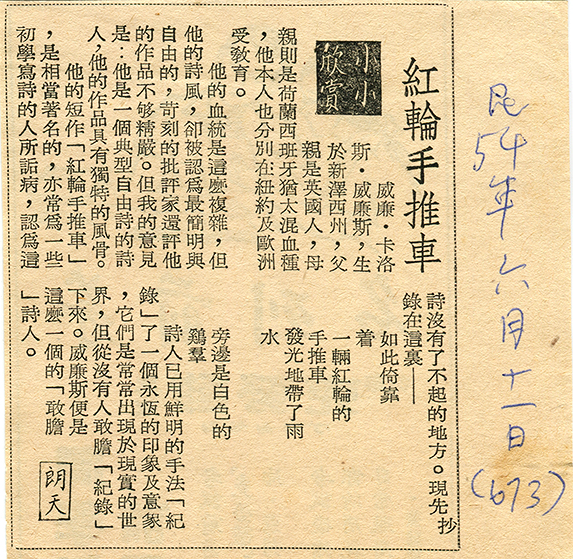 民54年六月十一日
(673)
紅輪手推車
小小
欣賞
威廉・卡洛
斯・威廉斯，生
於新澤西州，父
親是英國人，母
親則是荷蘭西班牙猶太混血種
，他本人也分別在紐約及歐洲
受教育。
他的血統是這麽複雜，但
他的詩風，卻被認爲最簡明與
自由的，苛刻的批評家還評他
的作品不够精嚴。但我的意見
是：他是一個典型自由詩的詩
人，他的作品具有獨特的風骨。
他的短作「紅輪手推車」
，是相當著名的，亦常爲一些
初學寫詩的人所詬病，認爲這
詩沒有了不起的地方。現先抄
錄在這裏——
如此倚靠
着
一輛紅輪的
手推車
發光地帶了雨
水
旁邊是白色的
鷄羣
詩人已用鮮明的手法「紀
錄」了一個永恆的印象及意象
，它們是常常出現於現實的世
界，但從沒有人敢膽「紀錄」
下來。威廉斯便是
這麽一個的「敢膽
」詩人。
朗天